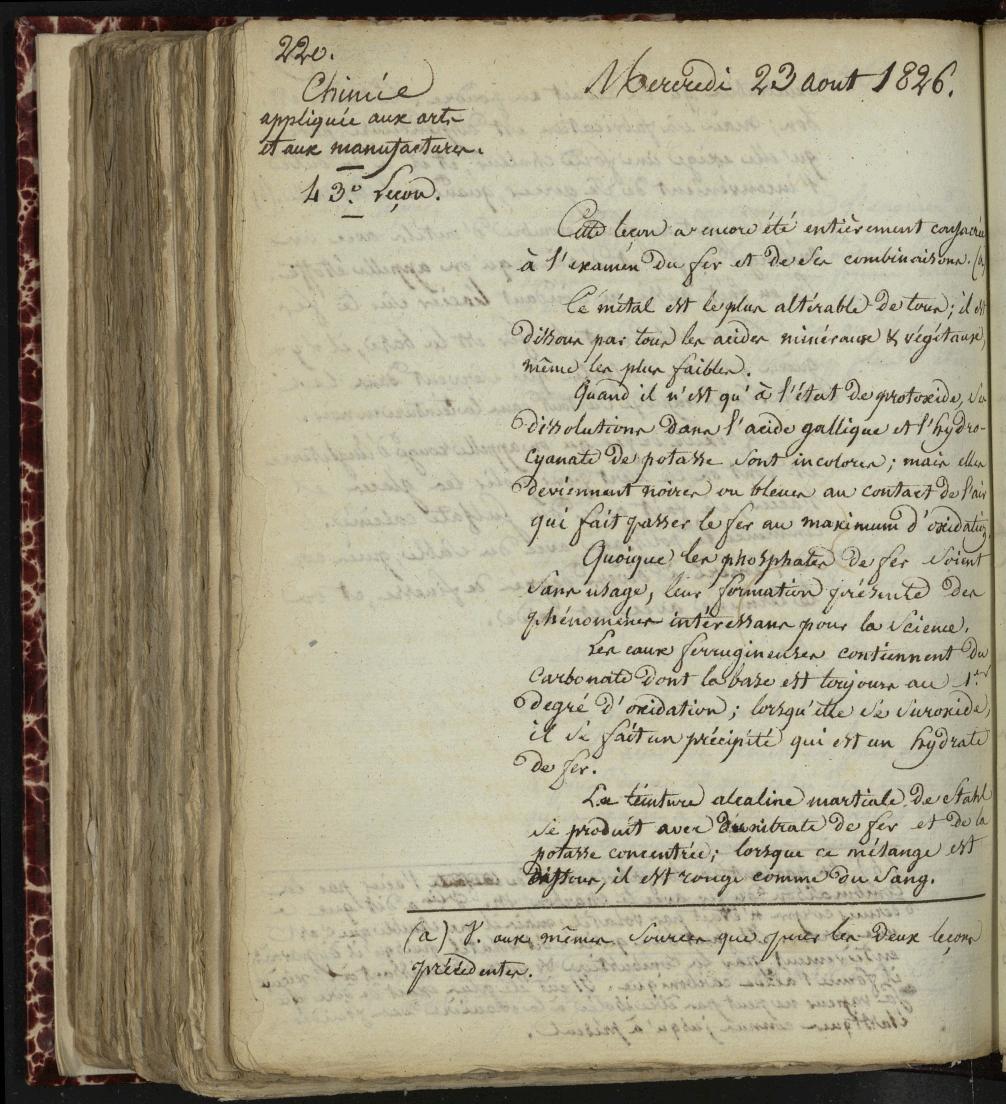 220.
Chimie
appliquée aux arts
et aux manufactures.
43e. Leçon.
Mercredi 23 aout 1826.
Cette leçon a encore été entièrement consacrée
à l'examen du fer et de ses combinaisons. (a)
Ce métal est le plus altérable de tous; il est
dissous par tous les acides minéraux & végétaux,
même les plus faibles.
Quand il n'est qu'à l'état de protoxide, ses
dissolutions dans l'acide gallique et l'hydro-
cyanate de potasse sont incolores; mais elles
deviennent noires ou bleues au contact de l'air
qui fait passer le fer au maximum d'oxidation.
Quoique les phosphates de fer soient
sans usage, leur formation présente des
phénomènes intéressans pour la science.
Les eaux ferrugineuses contiennent du
carbonate dont la base est toujours au 1er
degré d'oxidation; lorsqu'elle se suroxide,
il se fait un précipité qui est un hydrate
de fer.
La teinture alcaline martiale de Stahl
se produit avec du nitrate de fer et de la
potasse concentrée; lorsque ce mélange est
dissous, il est rouge comme du sang.
(a) V. aux mêmes sources que pour les deux leçons
précédentes.